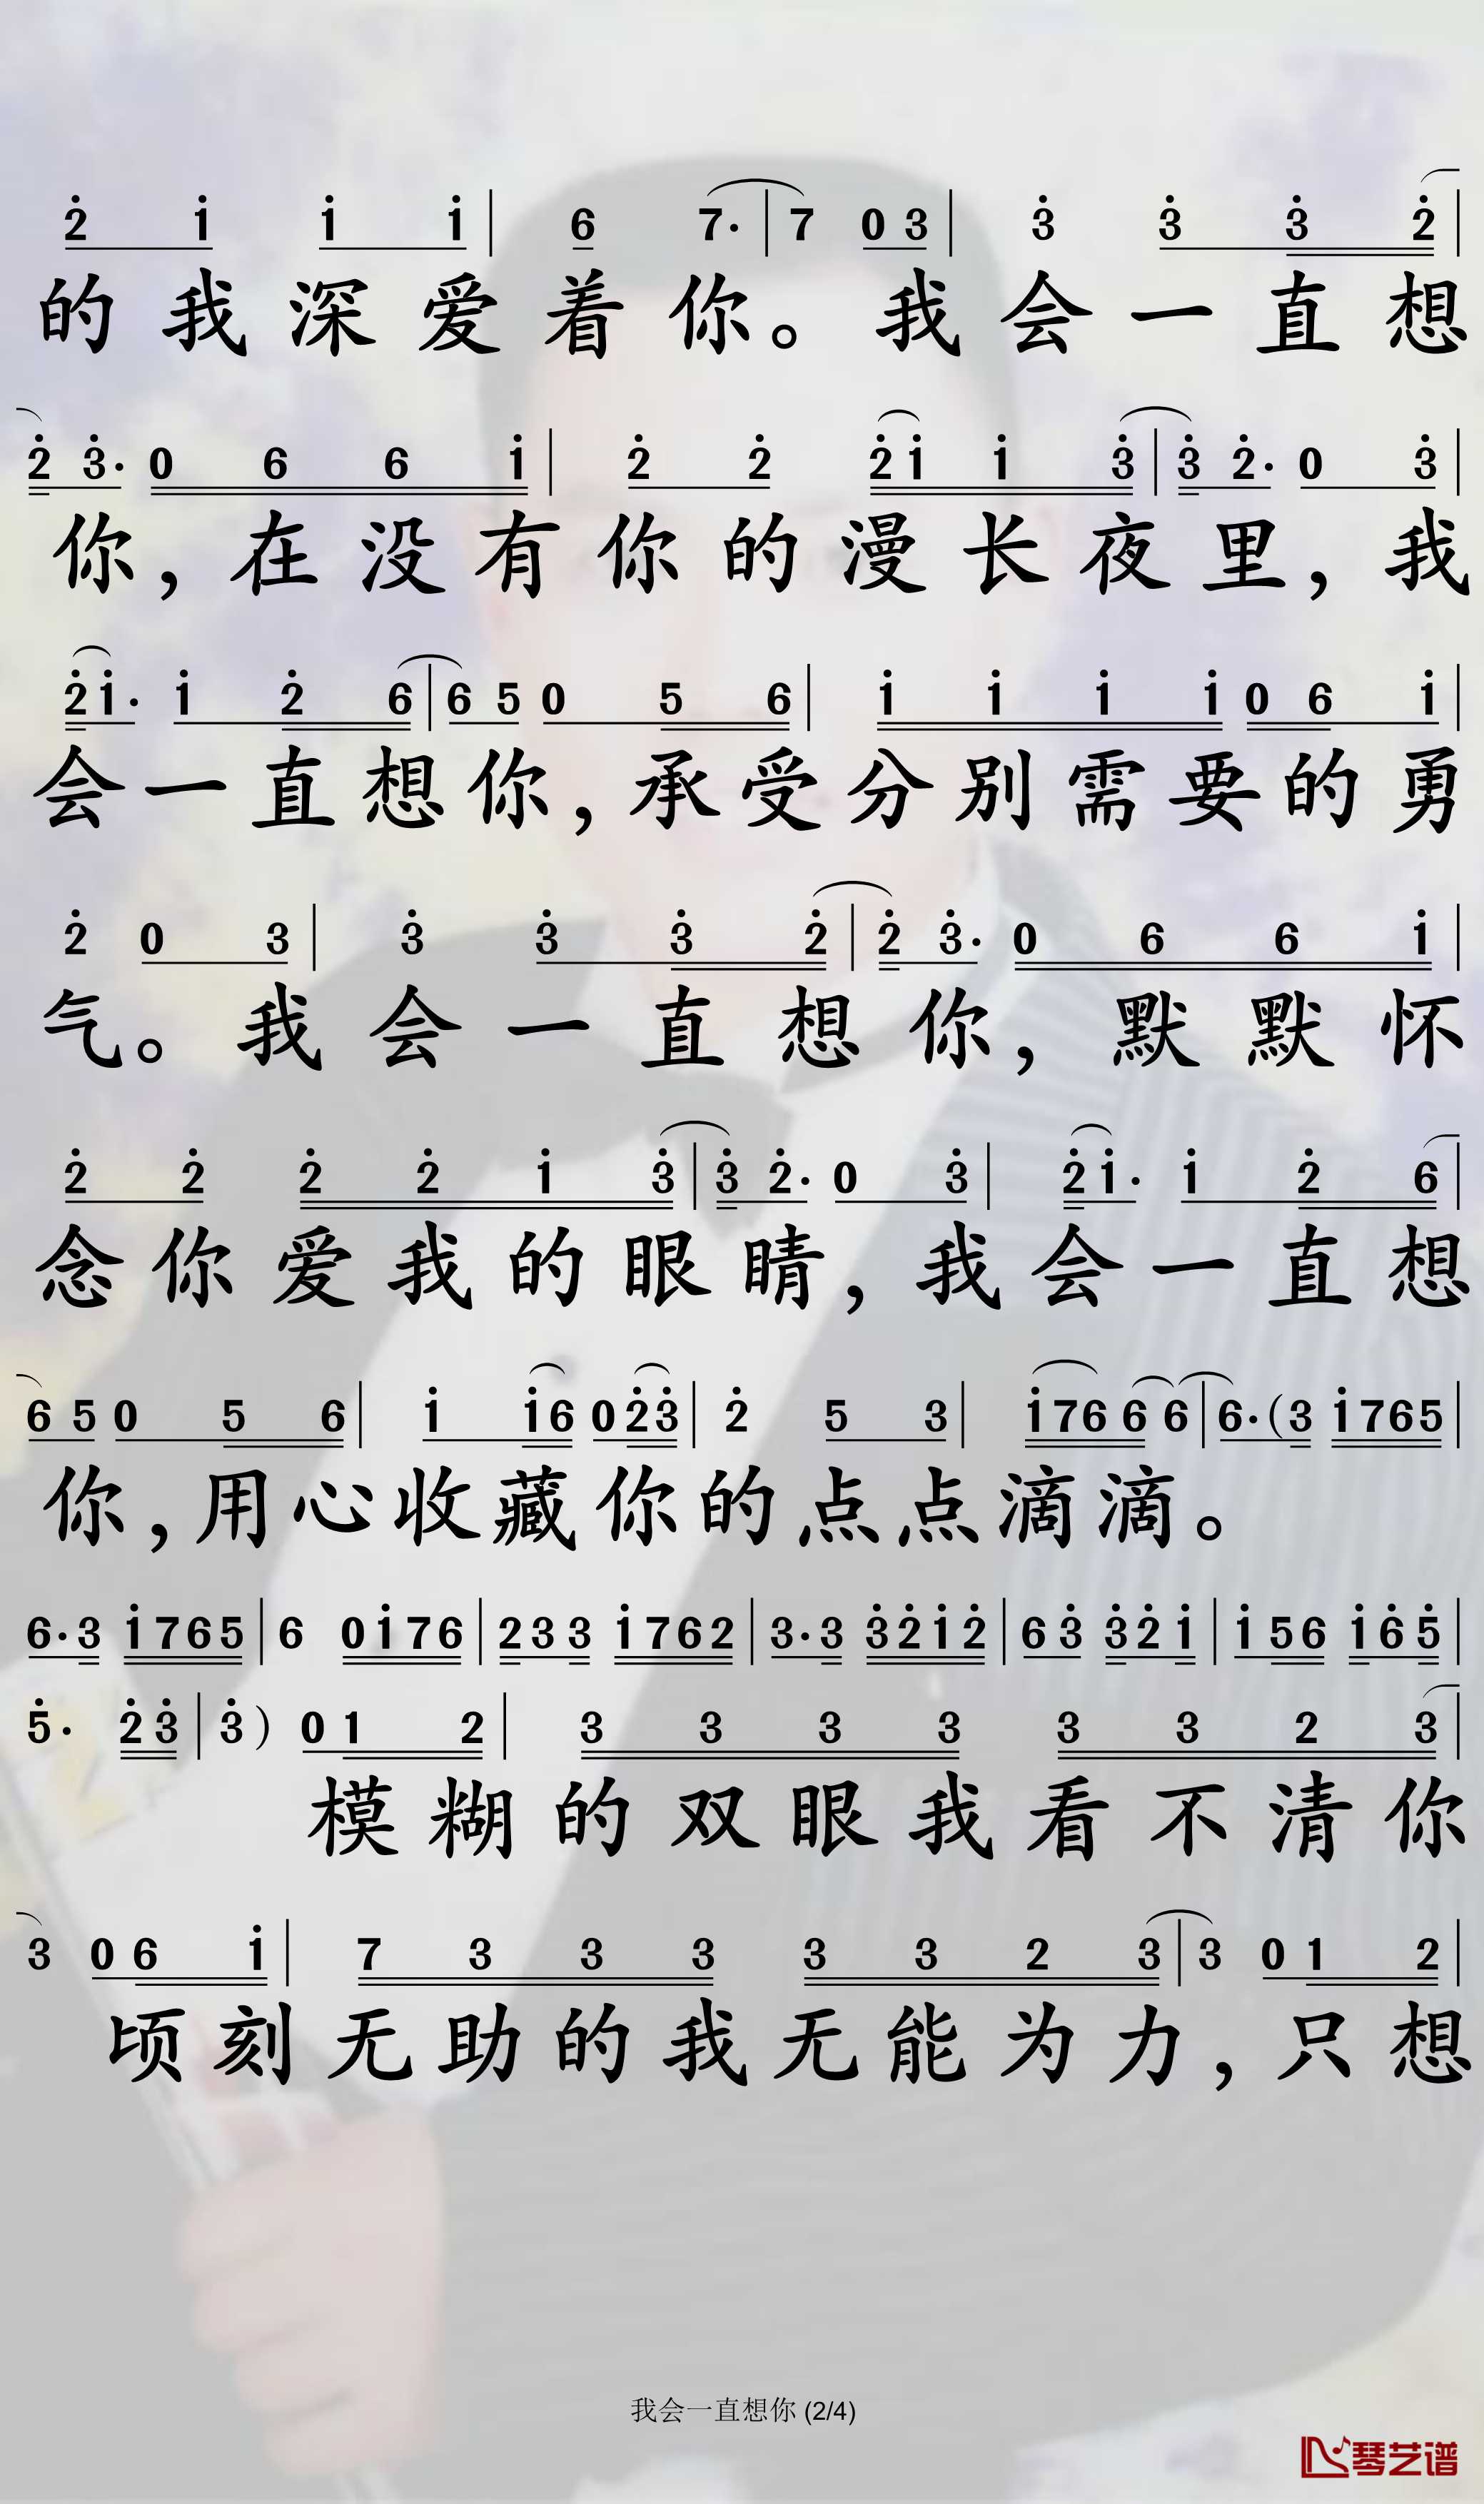 2̇ 1̇ 1̇ 1̇ | 6 7· | 7 0 3 | 3̇ 3̇ 3̇ 2̇ |
的我深爱着你。我会一直想
2̇ 3̇· 0 6 6 1̇ | 2̇ 2̇ 2̇ 1̇ 1̇ 3̇ | 3̇ 2̇· 0 3̇ |
你,在没有你的漫长夜里,我
2̇ 1̇· 1̇ 2̇ 6 | 6 5 0 5 6 | 1̇ 1̇ 1̇ 1̇ 0 6 1̇ |
会一直想你,承受分别需要的勇
2̇ 0 3 | 3̇ 3̇ 3̇ 2̇ | 2̇ 3̇· 0 6 6 1̇ |
气。我会一直想你,默默怀
2̇ 2̇ 2̇ 2̇ 1̇ 3̇ | 3̇ 2̇· 0 3̇ | 2̇ 1̇· 1̇ 2̇ 6 |
念你爱我的眼睛,我会一直想
6 5 0 5 6 | 1̇ 1̇ 6 0 2̇ 3̇ | 2̇ 5 3 | 1̇ 7 6 6 6 | 6· (3 1̇ 7 6 5 |
你,用心收藏你的点点滴滴。
6· 3 1̇ 7 6 5 | 6 0 1̇ 7 6 | 2 3 3 1̇ 7 6 2 | 3· 3 3̇ 2̇ 1̇ 2̇ | 6 3̇ 3̇ 2̇ 1̇ | 1̇ 5 6 1̇ 6̇ 5̇ |
5̇· 2̇ 3̇ | 3̇ ) 0 1 2 | 3 3 3 3 3 3 2 3 |
模糊的双眼我看不清你
3 0 6 1̇ | 7 3 3 3 3 3 2 3 | 3 0 1 2 |
顷刻无助的我无能为力,只想
我会一直想你 (2/4)
琴艺谱